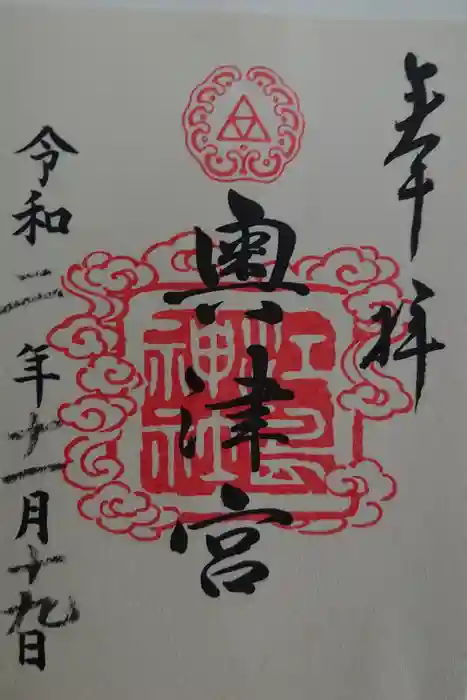 奉拝
奥津宮
江島
神社
令和二年十一月十九日